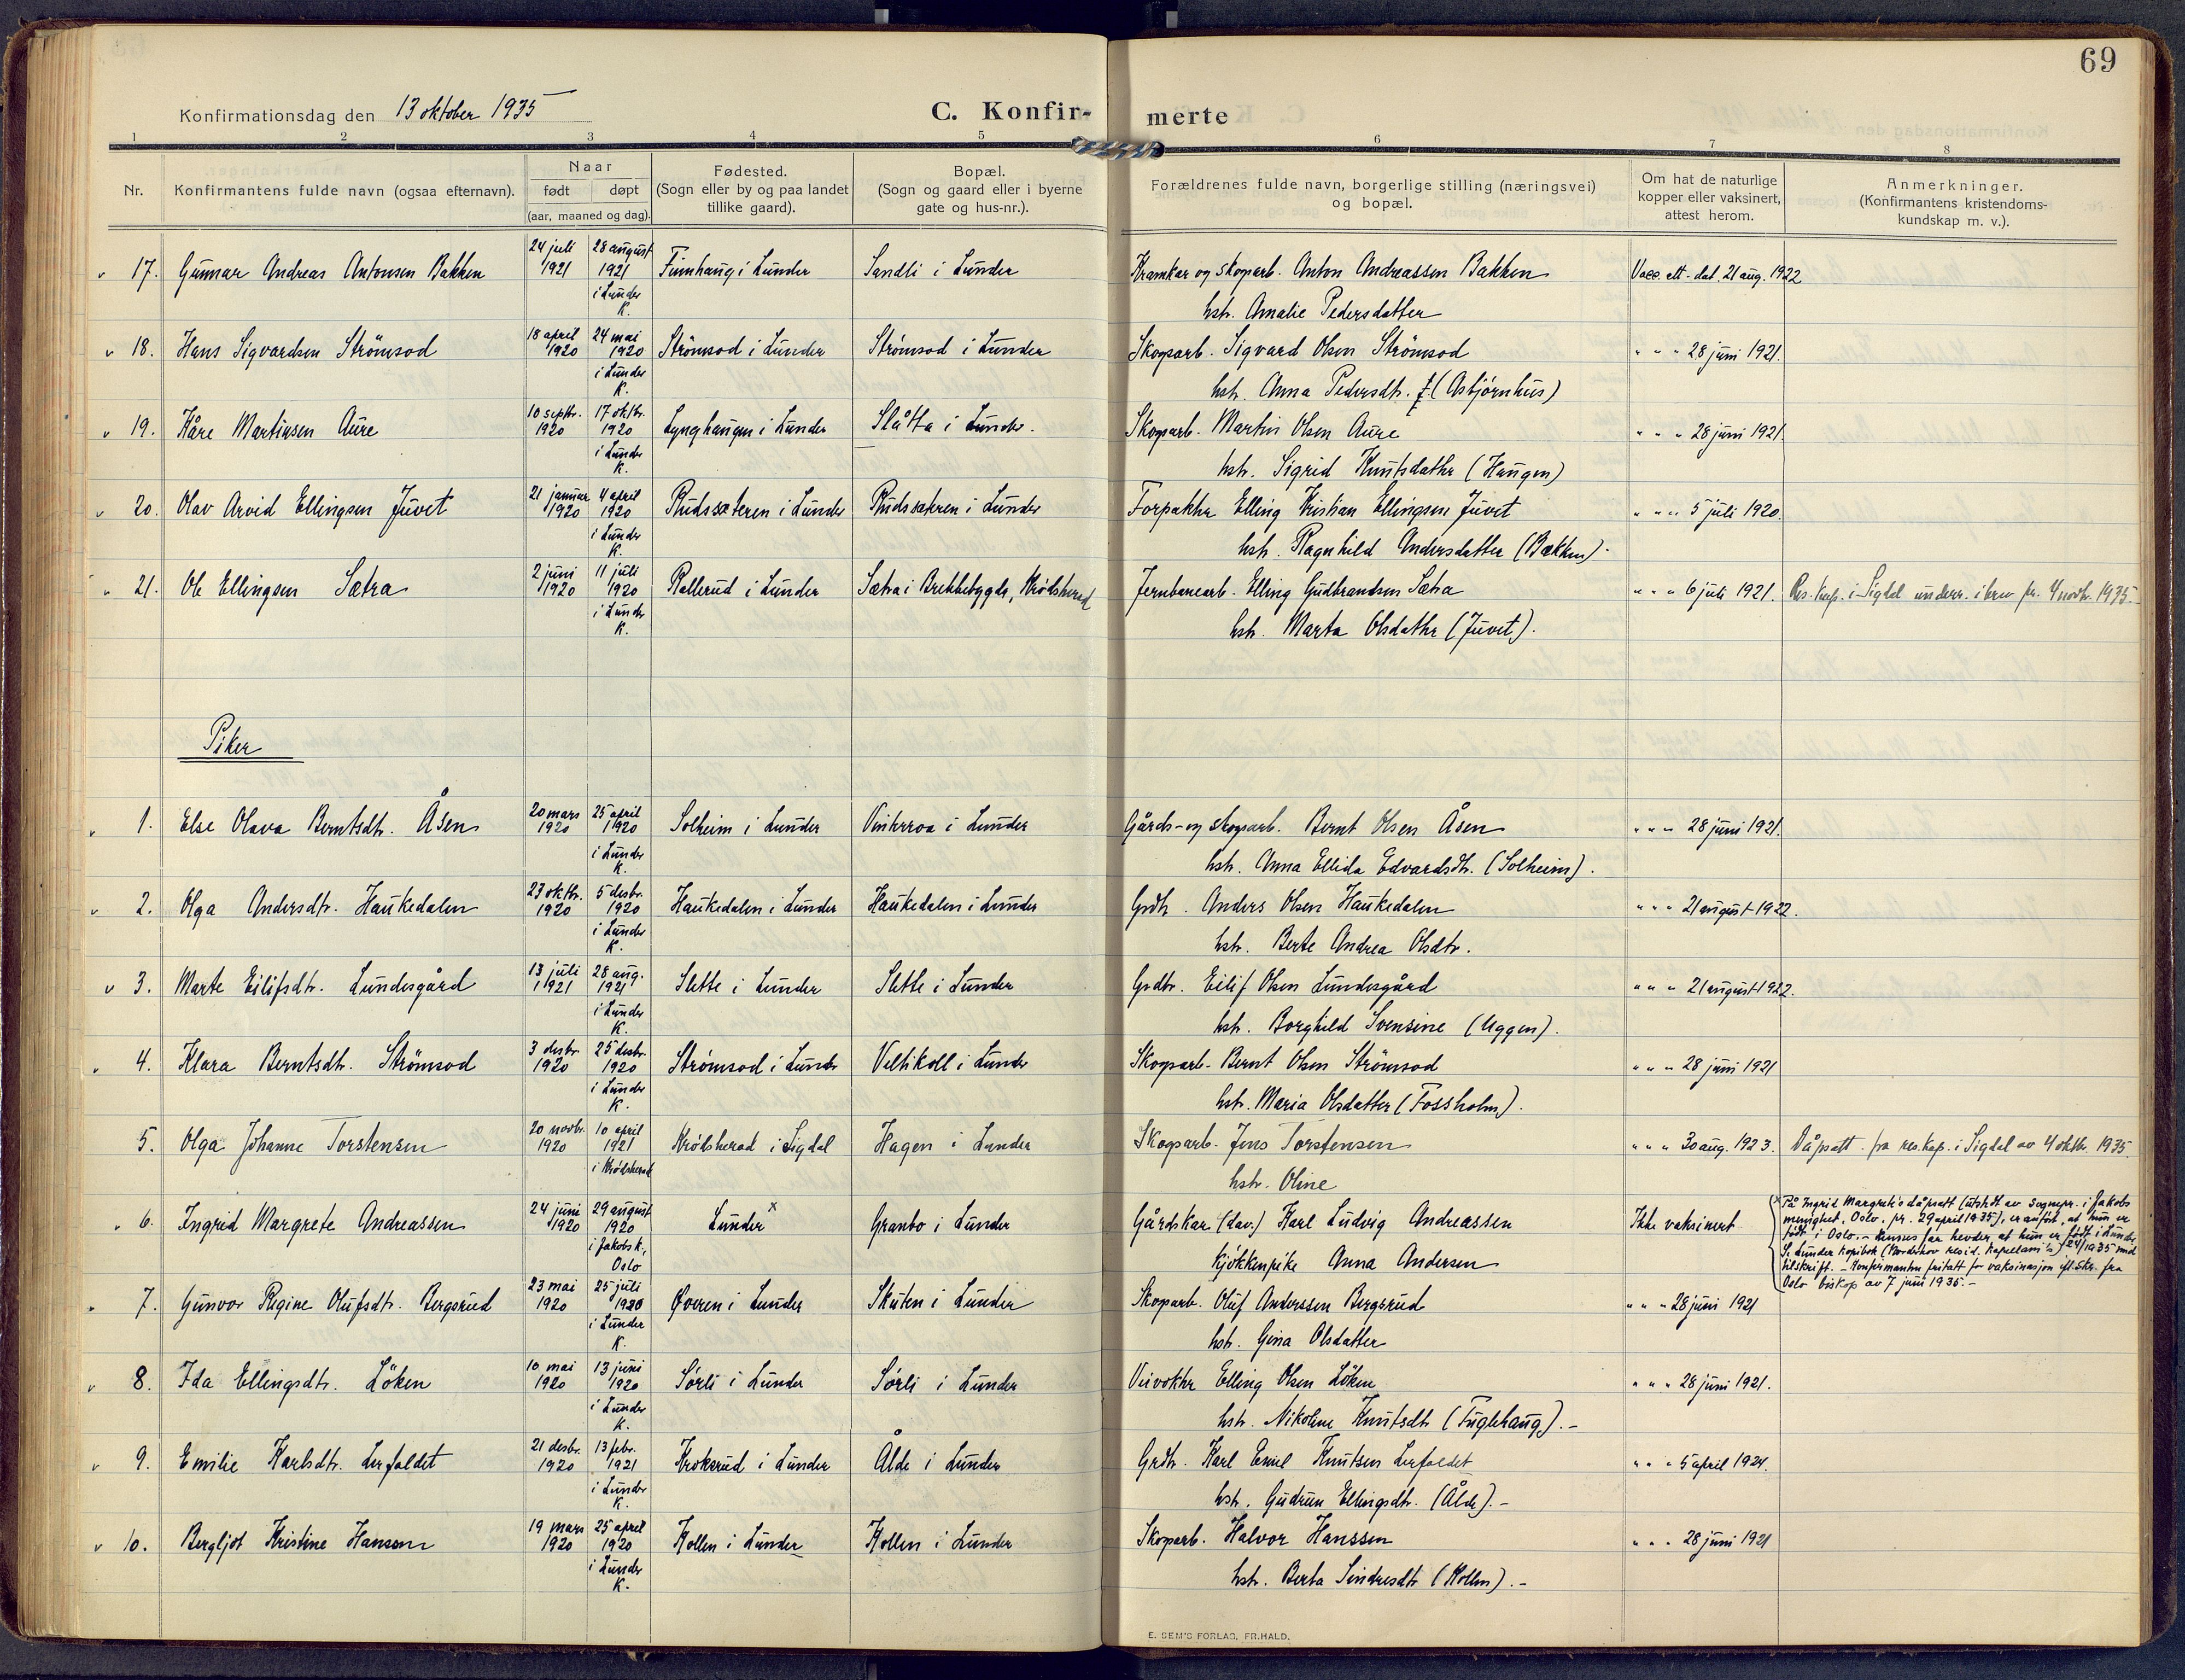 69
Konfirmationsdag den 13 oktober 1935
C. Konfir- merte
1 2 3 4 5 6 7 8
Nr. Konfirmantens fulde navn (ogsaa efternavn). Naar født døpt (aar, maaned og dag). Fødested. (Sogn eller by og paa landet tillike gaard). Bopæl. (Sogn og gaard eller i byerne gate og hus-nr.). Forældrenes fulde navn, borgerlige stilling (næringsvei) og bopæl. Om hat de naturlige kopper eller vaksinert, attest herom. Anmerkninger. (Konfirmantens kristendoms-kundskap m. v.).
v 17. Gunnar Andreas Antonsen Bakken 24 juli 1921 28 august 1921 i Lunder K. Finnhaug i Lunder Sandli i Lunder Kramkar og skogarb. Anton Andreassen Bakken Vacc. att. dat. 21 aug. 1922
hstr. Amalie Pedersdatter
v 18. Hans Sigvardsen Strömsod 18 april 1920 24 mai 1920 i Lunder K. Strömsod i Lunder Strömsod i Lunder Skogsarb. Sigvard Olsen Strömsod " " " 28 juni 1921.
hstr. Anna Pedersdtr. f. (Asbjørnhus)
v 19. Kåre Martinsen Aure 10 septbr. 1920 17 oktbr. 1920 i Lunder K. Lynghaugen i Lunder Slåtta i Lunder. Skogsarb. Martin Olsen Aure " " " 28 juni 1921.
hstr. Sigrid Knutsdatter (Haugen)
v 20. Olav Arvid Ellingsen Juvet 21 januar 1920 4 april 1920 i Lunder K. Rudssæteren i Lunder Rudssæteren i Lunder Forpakter Elling Kristian Ellingsen Juvet " " " 5 juli 1920.
hstr. Ragnhild Andersdatter (Bækken).
" 21. Ole Ellingsen Sætra 2 juni 1920 11 juli 1920 i Lunder K. Rallerud i Lunder Sætra i Brekkebygda, Krödsherad Jernbanearb. Elling Gudbrandsen Sætra " " " 6 juli 1921. Res. kap. i Sigdal underr. i brev fr. 4 novbr. 1935.
hstr. Marta Olsdatter (Juvet).
Piker
v 1. Else Olava Berntsdtr. Åsen 20 mars 1920 25 april 1920 i Lunder K. Solheim i Lunder Vinterroa i Lunder Gårds- og skogsarb. Bernt Olsen Åsen " " " 28 juni 1921.
hstr. Anna Ellida Edvardsdtr. (Solheim).
v 2. Olga Andersdtr. Haukedalen 23 oktbr. 1920 5 desbr. 1920 i Lunder K. Haukedalen i Lunder Haukedalen i Lunder Grdbr. Anders Olsen Haukedalen " " " 21 august 1922.
hstr. Berte Andrea Olsdtr.
v 3. Marte Eilifsdtr. Lundesgård 13 juli 1921 28 aug. 1921 i Lunder K. Slette i Lunder Slette i Lunder Grdbr. Eilif Olsen Lundesgård " " " 21 august 1922.
hstr. Borghild Svensine (Uggen).
v 4. Klara Berntsdtr. Strömsod 3 desbr 1920 25 desbr. 1920 i Lunder K. Strömsod i Lunder Veltikoll i Lunder Skogsarb. Bernt Olsen Strömsod " " " 28 juni 1921
hstr. Maria Olsdatter (Fossholm).
5. Olga Johanne Torstensen 20 novbr. 1920 10 april 1921 i Krödsherad Krödsherad i Sigdal Hagen i Lunder Skogsarb. Jens Torstensen " " " 30 aug. 1923. Dåpsatt. fra res. kap. i Sigdal av 4 oktbr. 1935.
hstr. Oline
" 6. Ingrid Margrete Andreassen 24 juni 1920 29 august 1920 i Jakobs k., Oslo Lunder x Granbo i Lunder Gårdskar (dav.) Karl Ludvig Andreassen Ikke vaksinert
kjökkenpike Anna Andersen
x På Ingrid Margrete's dåpsatt (utstedt av sognepr. i Jakobs
menighet, Oslo, pr. 29 april 1935), er anført, at hun er
født i Oslo. - Hennes far hevder at hun er født i Lunder
Se Lunder kopibok (Nordrehov resid. kapellani's) 24/1935 med
tilskrift. - Konfirmanten fritatt for vaksinasjon efl. skr. fra
Oslo biskop av 7 juni 1935. -
" 7. Gunvor Regine Olufsdtr. Bergsrud 23 mai 1920 25 juli 1920 i Lunder K. Øveren i Lunder Skuten i Lunder Skogsarb. Oluf Anderssen Bergsrud " " " 28 juni 1921
hstr. Gina Olsdatter
v 8. Ida Ellingsdtr. Löken 10 mai 1920 13 juni 1920 i Lunder K. Sørli i Lunder Sørli i Lunder Veivokter Elling Olsen Löken " " " 28 juni 1921.
hstr. Nikoline Knutsdtr (Fuglehaug). -
v 9. Emilie Karlsdtr. Lerfaldet 21 desbr. 1920 13 febr. 1921 i Lunder K. Kroksrud i Lunder Ålde i Lunder Grdbr. Karl Emil Knutsen Lerfaldet " " " 5 april 1924.
hstr. Gudrun Ellingsdtr. (Ålde). -
v 10. Bergljot Kristine Hanssen 19 mars 1920 25 april 1920 i Lunder K. Kollen i Lunder Kollen i Lunder Skogsarb. Halvor Hanssen " " " 28 juni 1921
hstr. Berta Sindresdtr (Kollen). -
E. SEM'S FORLAG, FR.HALD.